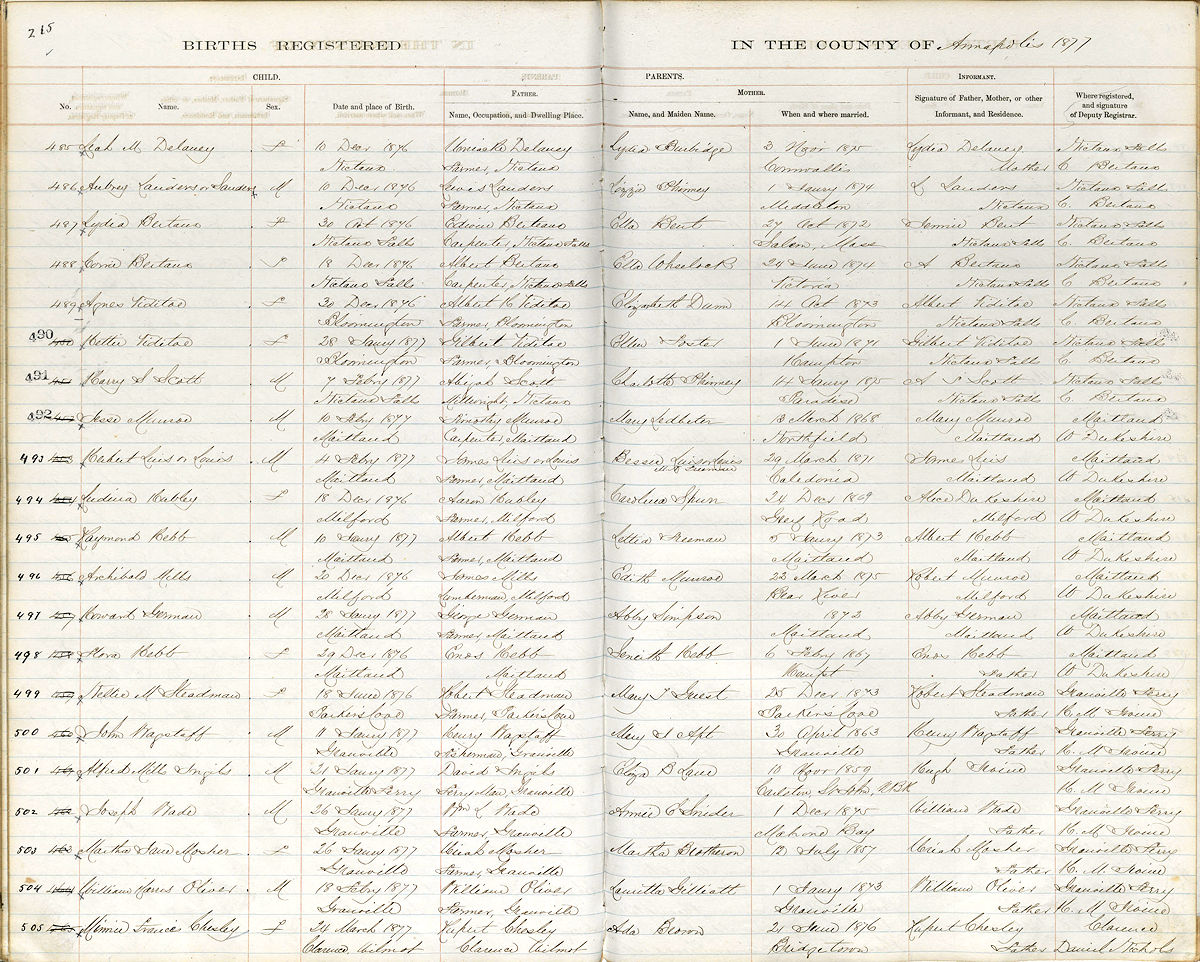 215
BIRTHS REGISTERED IN THE COUNTY OF Annapolis 1877
CHILD. PARENTS. INFORMANT.
FATHER. MOTHER.
No. Name. Sex. Date and place of Birth. Name, Occupation, and Dwelling Place. Name, and Maiden Name. When and where married. Signature of Father, Mother, or other Informant, and Residence. Where registered, and signature of Deputy Registrar.
485 Leah M Delaney F 10 Decr 1876 Delaney Lydia Burbidge 3 Novr 1875 Lydia Delaney Nictaux Falls
Nictaux Farmer, Nictaux Cornwallis Mother C Bertaux
486 Aubrey Landers or Sanders M 10 Decr 1876 Lewis Landers Lizzie Phinney 1 Jany 1874 L Landers Nictaux Falls
Nictaux Farmer, Nictaux Middleton Nictaux C. Bertaux
487 Lydia Bertaux F 30 Oct 1876 Edwin Bertaux Ella Bent 27 Oct 1872 Jennie Bent Nictaux Falls
Nictaux Falls Carpenter, Nictaux Falls Salem, Mass Nictaux Falls C. Bertaux
488 Bertaux F 18 Decr 1876 Albert Bertaux Etta Wheelock 24 June 1874 A Bertaux Nictaux Falls
Nictaux Falls Carpenter, Nictaux Falls Victoria Nictaux Falls C Bertaux
489 Agnes Viditoe F 30 Decr 1876 Albert C Viditoe Elizabeth Dunn 4 Oct 1873 Albert Viditoe Nictaux Falls
Bloomington Farmer, Bloomington Bloomington Nictaux Falls C. Bertaux
490 Hettie Viditoe F 28 Jany 1877 Gilbert Viditoe Ellen Foster 1 June 1871 Gilbert Viditoe Nictaux Falls
Bloomington Farmer, Bloomington Hampton Nictaux Falls C. Bertaux
491 Harry S Scott M 7 Febry 1877 Abijah Scott Charlotte Phinney 14 Jany 1875 A S Scott Nictaux Falls
Nictaux Falls Millwright, Nictaux Paradise Nictaux Falls C. Bertaux
492 Jesse Munroe M 10 Febry 1877 Timothy Munroe Mary Ledbeter 13 March 1868 Mary Munroe Maitland
Maitland Carpenter, Maitland Northfield Maitland W Dukeshire
493 Herbert Luis or Louis M 4 Febry 1877 James Luis or Louis Bessie Luis or Luis 29 March 1871 James Luis Maitland
Maitland Farmer, Maitland Caledonia Maitland W Dukeshire
494 Hubley F 18 Decr 1876 Aaron Hubley Carolina Spurr 24 Decr 1869 Alice Dukeshire Maitland
Milford Farmer, Milford Grey Road Milford W Dukeshire
495 Raymond Hebb M 10 Jany 1877 Albert Hebb Lettia Freeman 5 Jany 1873 Albert Hebb Maitland
Maitland Farmer, Maitland Maitland Maitland W Dukeshire
496 Archibald Mills M 20 Decr 1876 James Mills Edith Munroe 22 March 1875 Robert Munroe Maitland
Milford Lumberman, Milford Bear River Milford W Dukeshire
497 Howard German M 28 Jany 1877 George German Abby Simpson 1872 Abby German Maitland
Maitland Farmer, Maitland Maitland Maitland W Dukeshire
498 Flora Hebb F 29 Decr 1876 Enos Hebb Hebb 6 Febry 1867 Enos Hebb Maitland
Maitland Maitland Father W Dukeshire
499 Nellie M Steadman F 18 June 1876 Robert Steadman Mary J Guest 25 Decr 1873 Robert Steadman Granville Ferry
Parkers Cove Farmer, Parkers Cove Parkers Cove Father H. M. Irvine
500 John Wagstaff M 11 Jany 1877 Henry Wagstaff Mary S Apt 30 April 1863 Henry Wagstaff Granville Ferry
Granville Fisherman, Granville Granville Father H. M. Irvine
501 Alfred Mills Inglis M 21 Jany 1877 David Inglis Eliza B Lane 10 Novr 1859 Hugh Irvine Granville Ferry
Granville Ferry Ferry Man, Granville Carleton, St John, NBK H. M. Irvine
502 Joseph Wade M 26 Jany 1877 Wm L Wade Annie C Snider 1 Decr 1875 William Wade Granville Ferry
Granville Farmer, Granville Mahone Bay Father H. M. Irvine
503 Martha Jane Mosher F 26 Jany 1877 Uriah Mosher Martha Brotheron 12 July 1857 Uriah Mosher Granville Ferry
Granville Farmer, Granville Father H. M. Irvine
504 William Norris Oliver M 18 Febry 1877 William Oliver Lauretta Gilliatt 1 Jany 1873 William Oliver Granville Ferry
Granville Farmer, Granville Granville Father H. M. Irvine
505 Minnie Frances Chesley F 24 March 1877 Rupert Chesley Ada Brown 21 June 1876 Rupert Chesley Clarence
Clarence Wilmot Clarence Wilmot Bridgetown Father Daniel Nichols